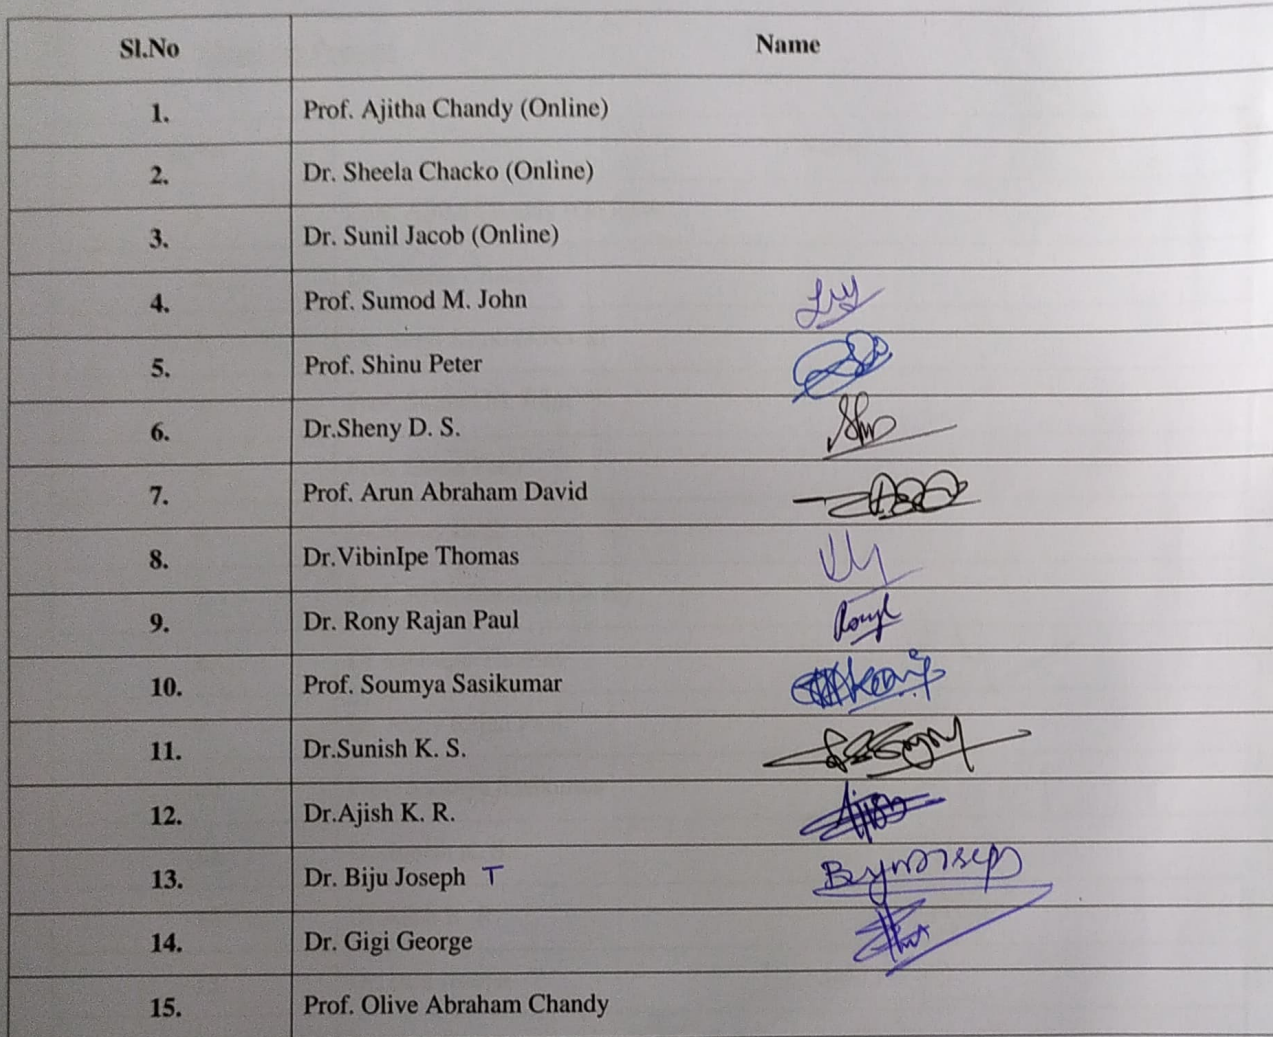 Sl.No Name
1. Prof. Ajitha Chandy (Online)
2. Dr. Sheela Chacko (Online)
3. Dr. Sunil Jacob (Online)
4. Prof. Sumod M. John
5. Prof. Shinu Peter
6. Dr.Sheny D. S.
7. Prof. Arun Abraham David
8. Dr.VibinIpe Thomas
9. Dr. Rony Rajan Paul
10. Prof. Soumya Sasikumar
11. Dr.Sunish K. S.
12. Dr.Ajish K. R.
13. Dr. Biju Joseph T
14. Dr. Gigi George
15. Prof. Olive Abraham Chandy